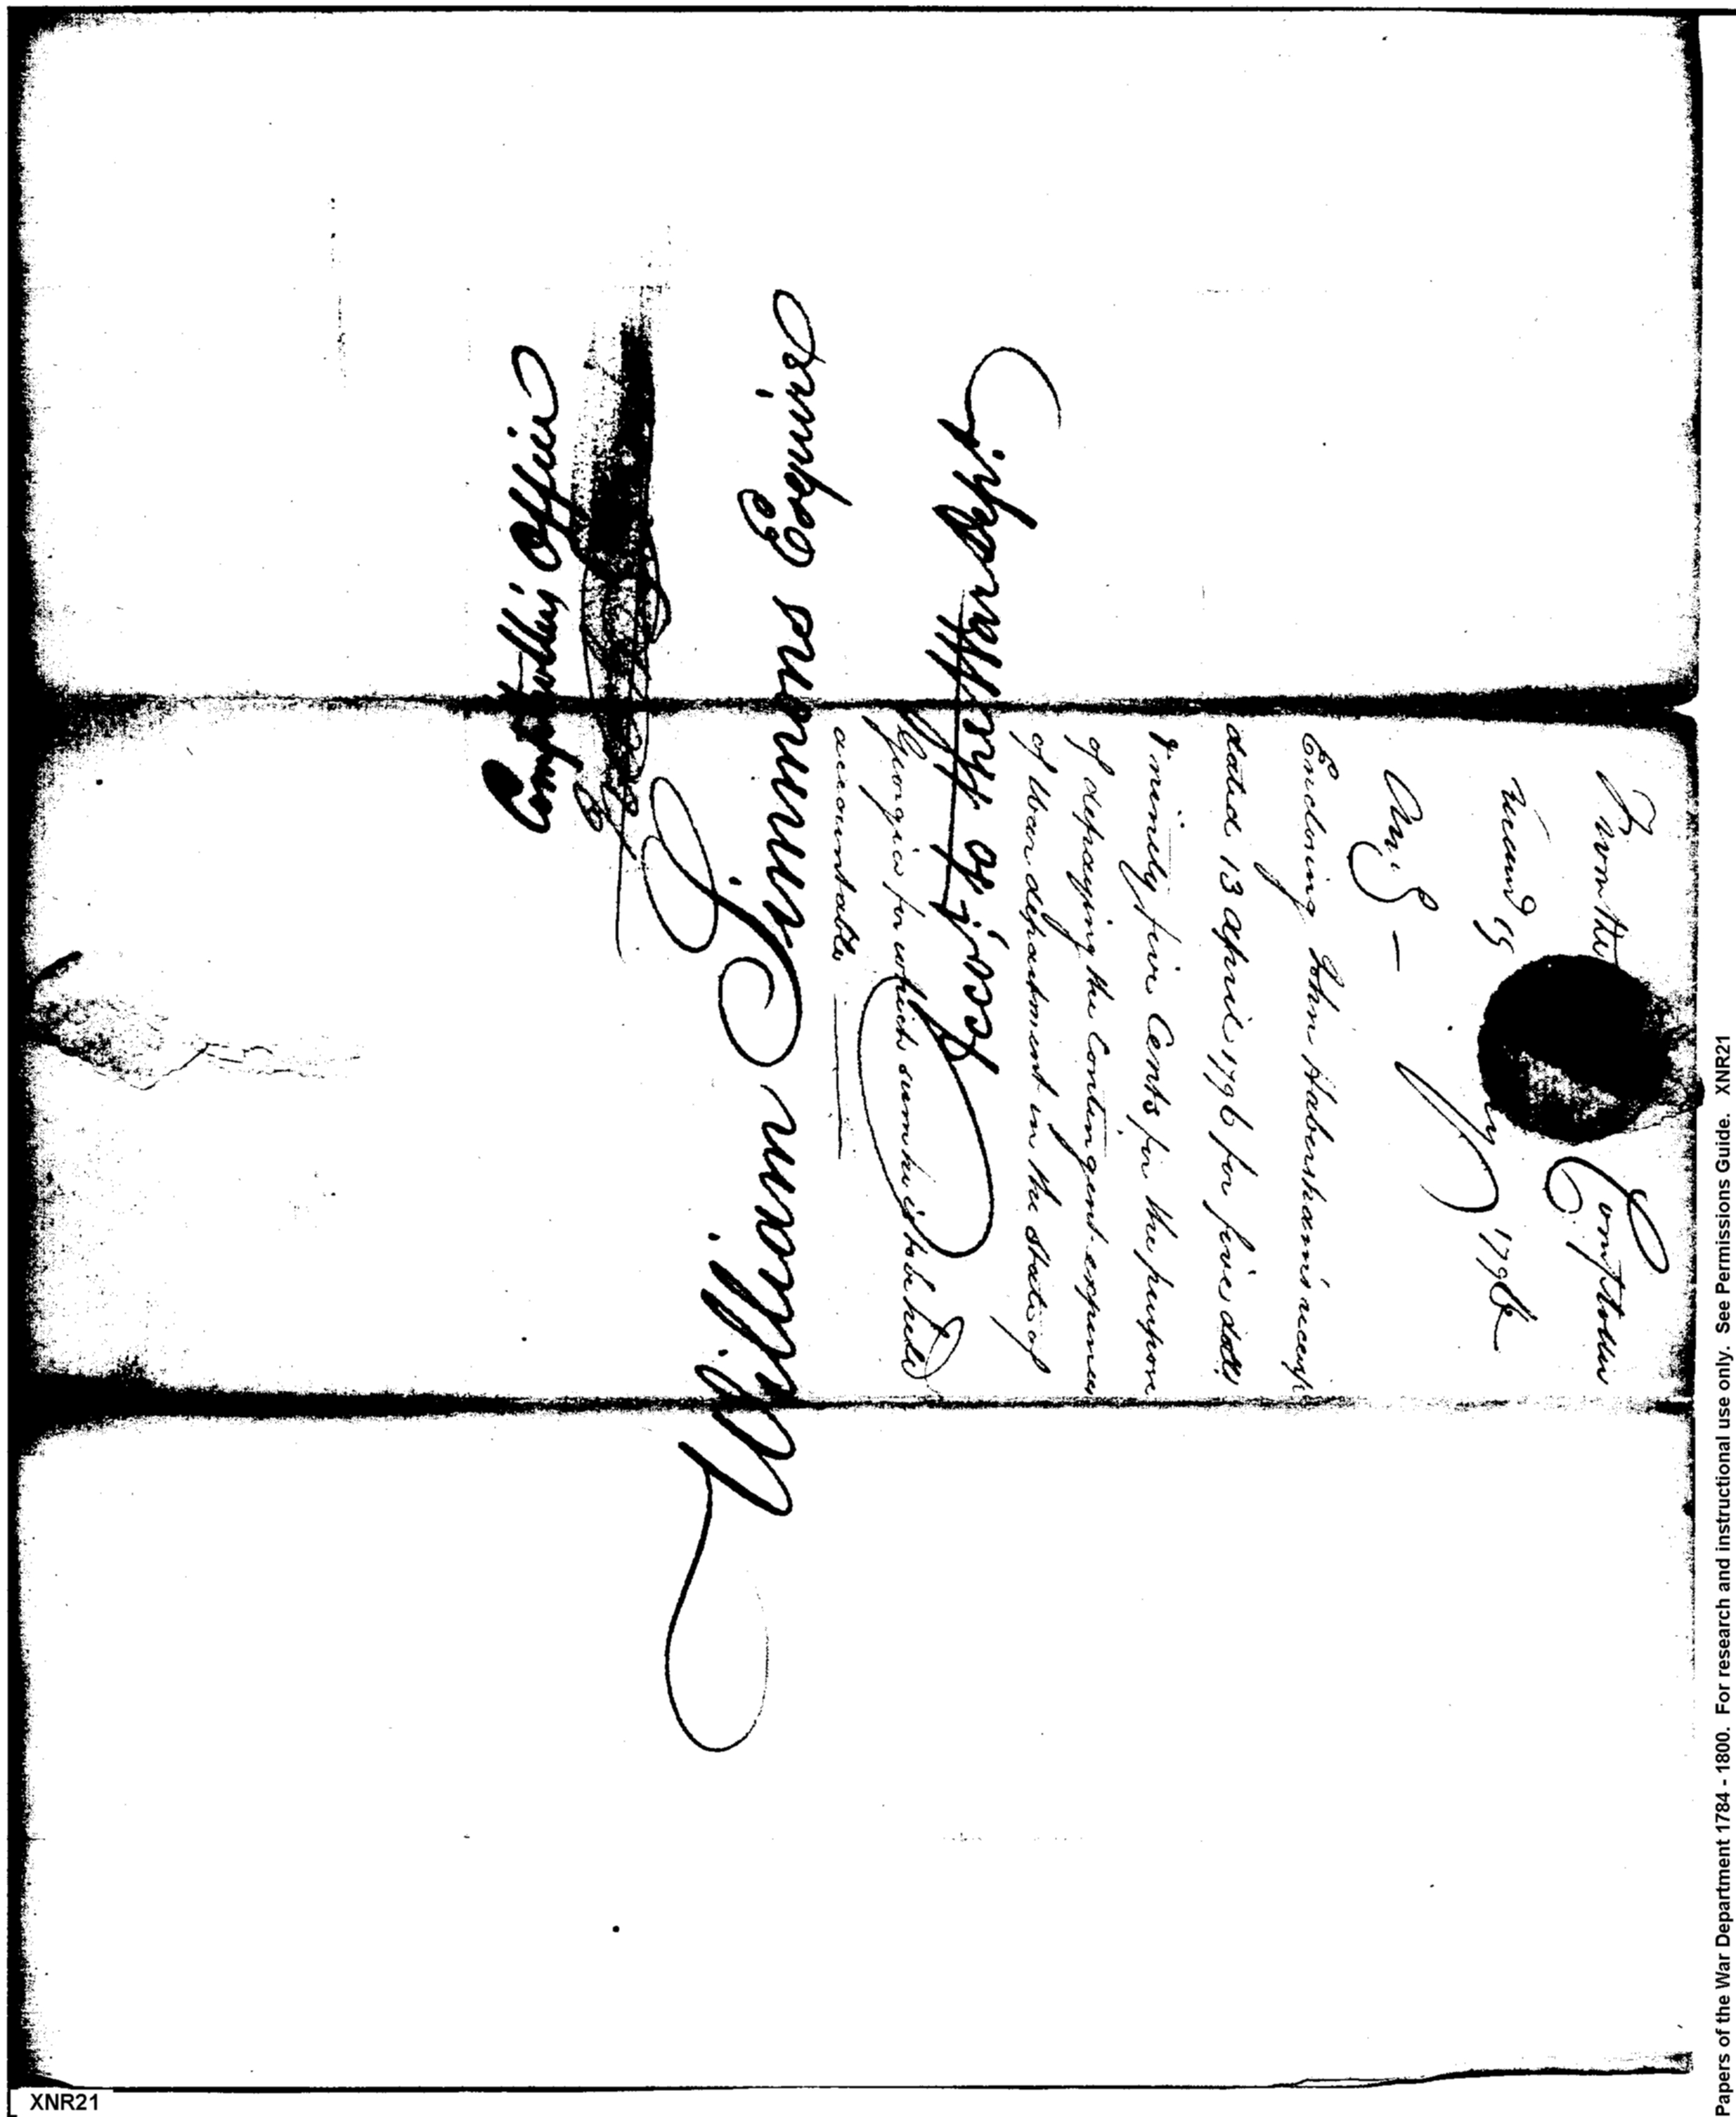 Comptrollers Office
William Simmons Esquire
Acco.t of the War dep.t
From the Comptroller
Received 19 1796
An.d —
Enclosing John Habersham's receipt
dated 13 April 1796 for five dolls
& ninety five Cents for the purpose
of defraying the Contingent expences
of War department in the State of
Georgia for which sum he is to be held
accountable
Papers of the War Department 1784 - 1800. For research and instructional use only. See Permissions Guide. XNR21
XNR21